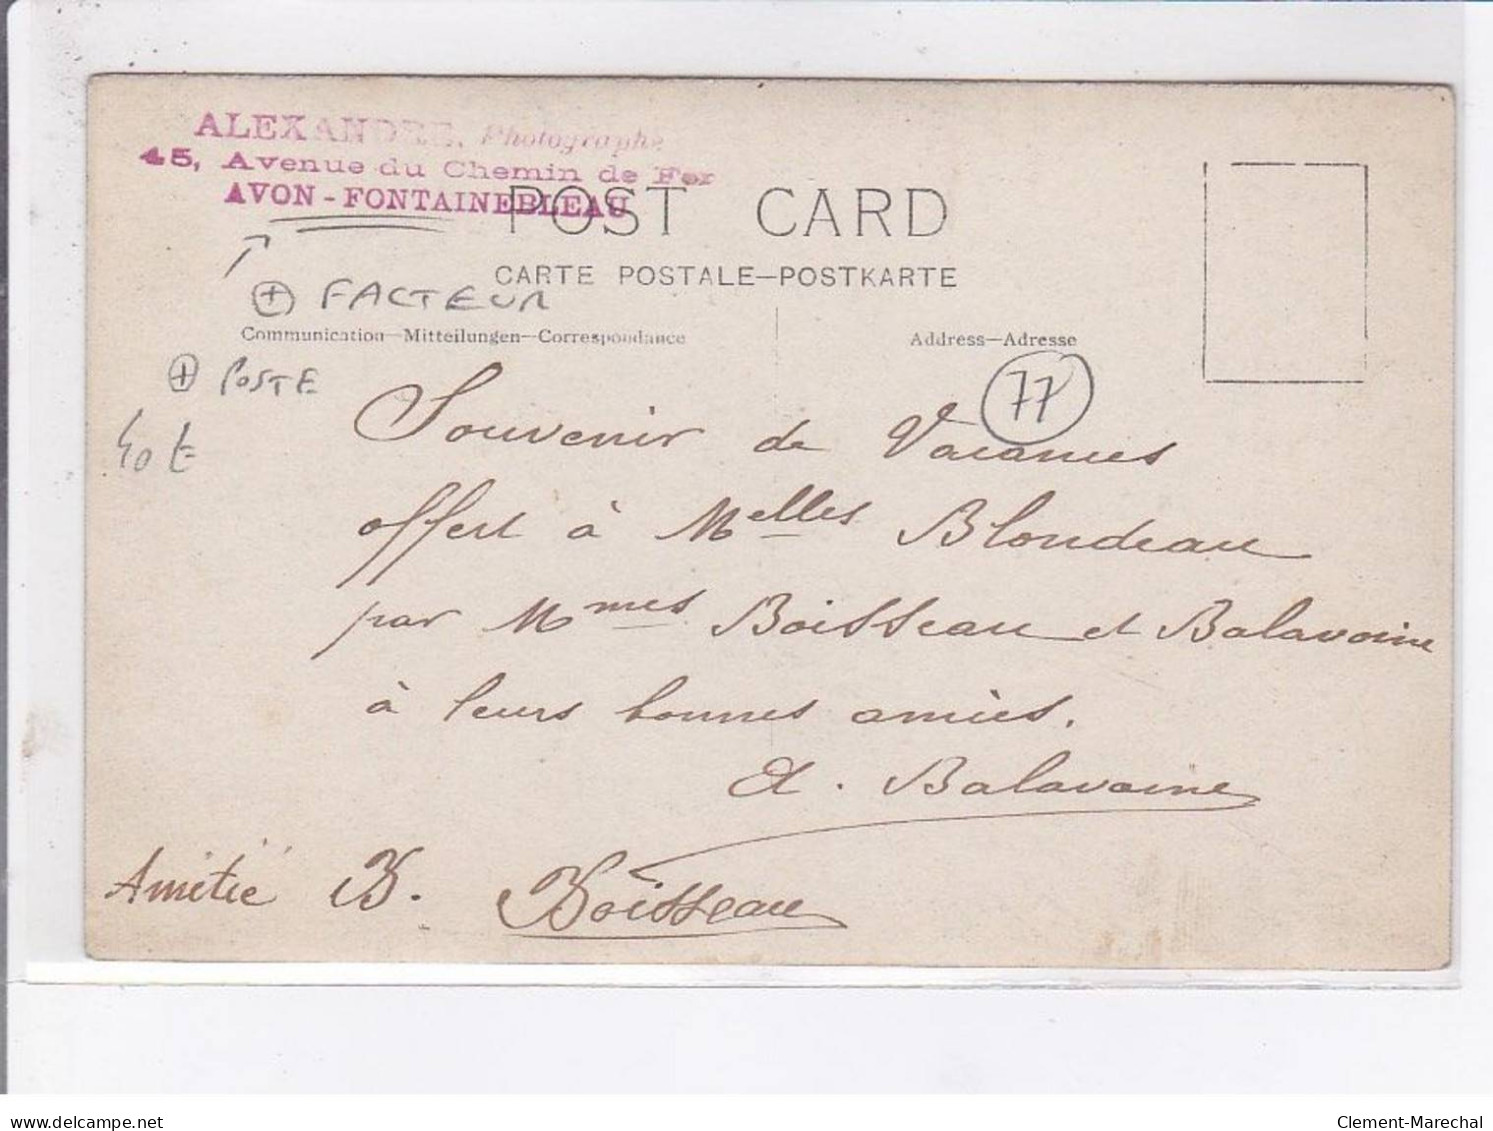 ALEXANDRE, Photographe
45, Avenue du Chemin de Fer
AVON-FONTAINEBLEAU
POST CARD
CARTE POSTALE—POSTKARTE
+ FACTEUR
Communication—Mitteilungen—Correspondance
Address—Adresse
+ POSTE
77
40 €
Souvenir de Vacances
offert à Melles Blondeau
par Mmes Boisseau et Balavoine
à leurs bonnes amies.
A. Balavoine
Amitié B. Boisseau
delcampe.net
Clement-Marechal